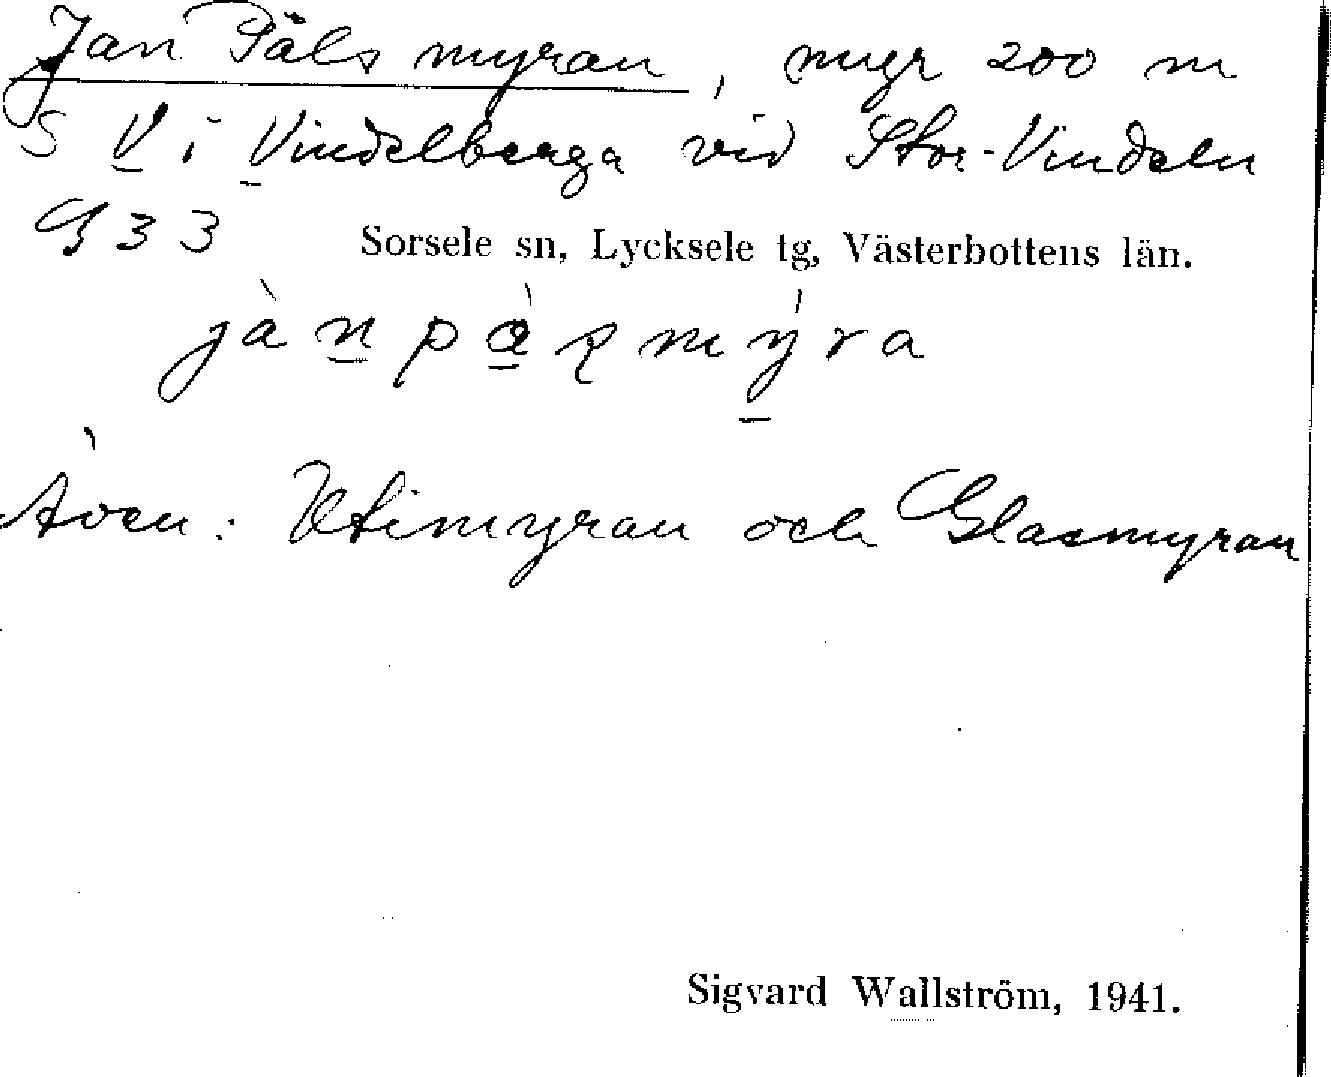 Jan Påls myran, myr 200 m
S V i Vindelberga vid Stor-Vindeln
G 3 3 Sorsele sn, Lycksele tg, Västerbottens län.
Även: Utimyran och Glasmyran
Sigvard Wallström, 1941.